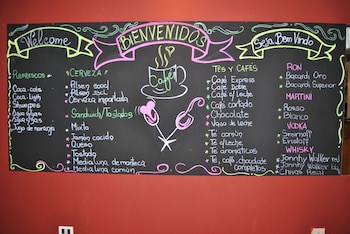 Welcome
BIENVENIDOS
Seja Bem Vindo
Refrescos
Coca-cola
Coca light
Agua c/gas
Agua s/gas
Jugo de naranja
CERVEZA
Pilsen
Pilsen
Cerveza importada
Sandwich/Tostados
Mixto
Jamon cocido
Queso
Tostado
Media luna de manteca
Media luna común
Café
TES Y CAFES
Café Express
Café Doble
Café c/leche
Café cortado
Chocolate
Vaso de leche
Te común
Te c/leche
Te aromaticos
Te, café, chocolate
Completos
RON
Bacardi Oro
Bacardi Superior
MARTINI
Rosso
Bianco
VODKA
Smirnoff
Eristoff
WHISKY
Johnny Walker red
Johnny Walker
Chivas Regal